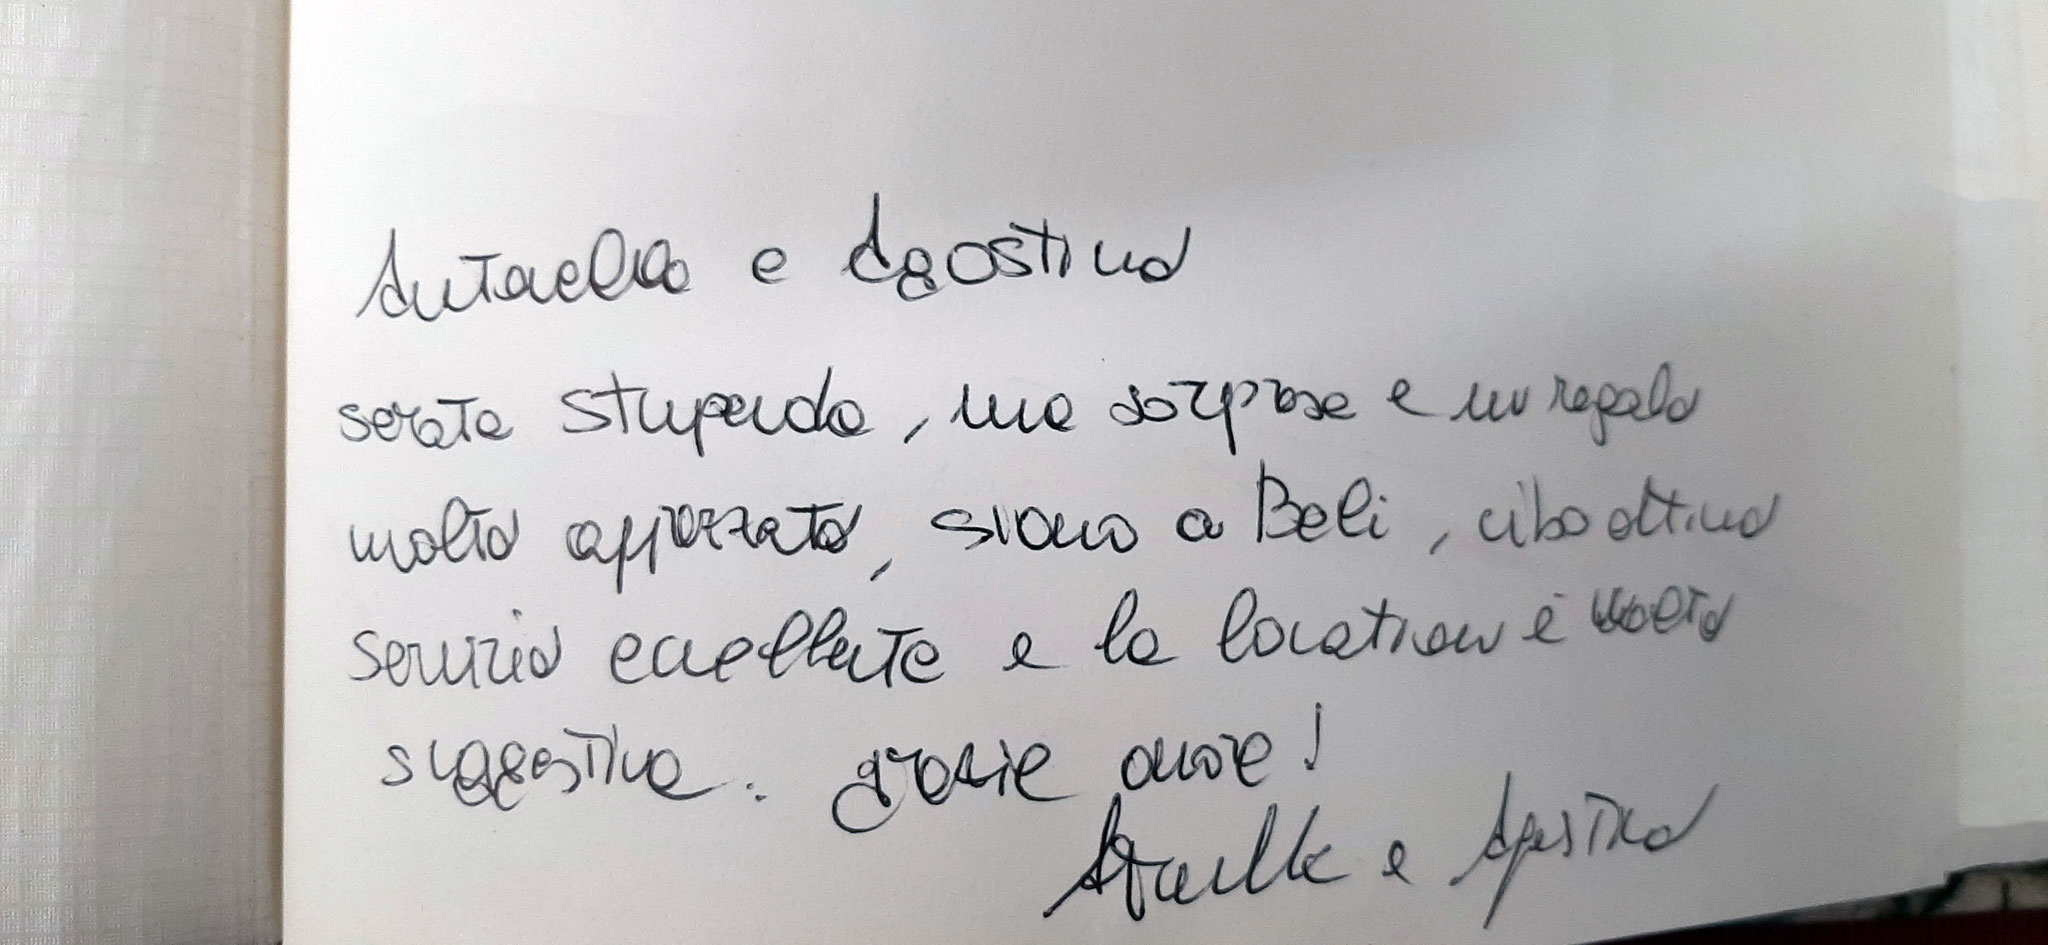 Antonella e Agostino
serata stupenda, una sorpresa e un regalo
molto apprezzato, siamo a Bali, cibo ottimo
servizio eccellente e la location è molto
suggestiva. grazie amore!
Antonella e Agostino